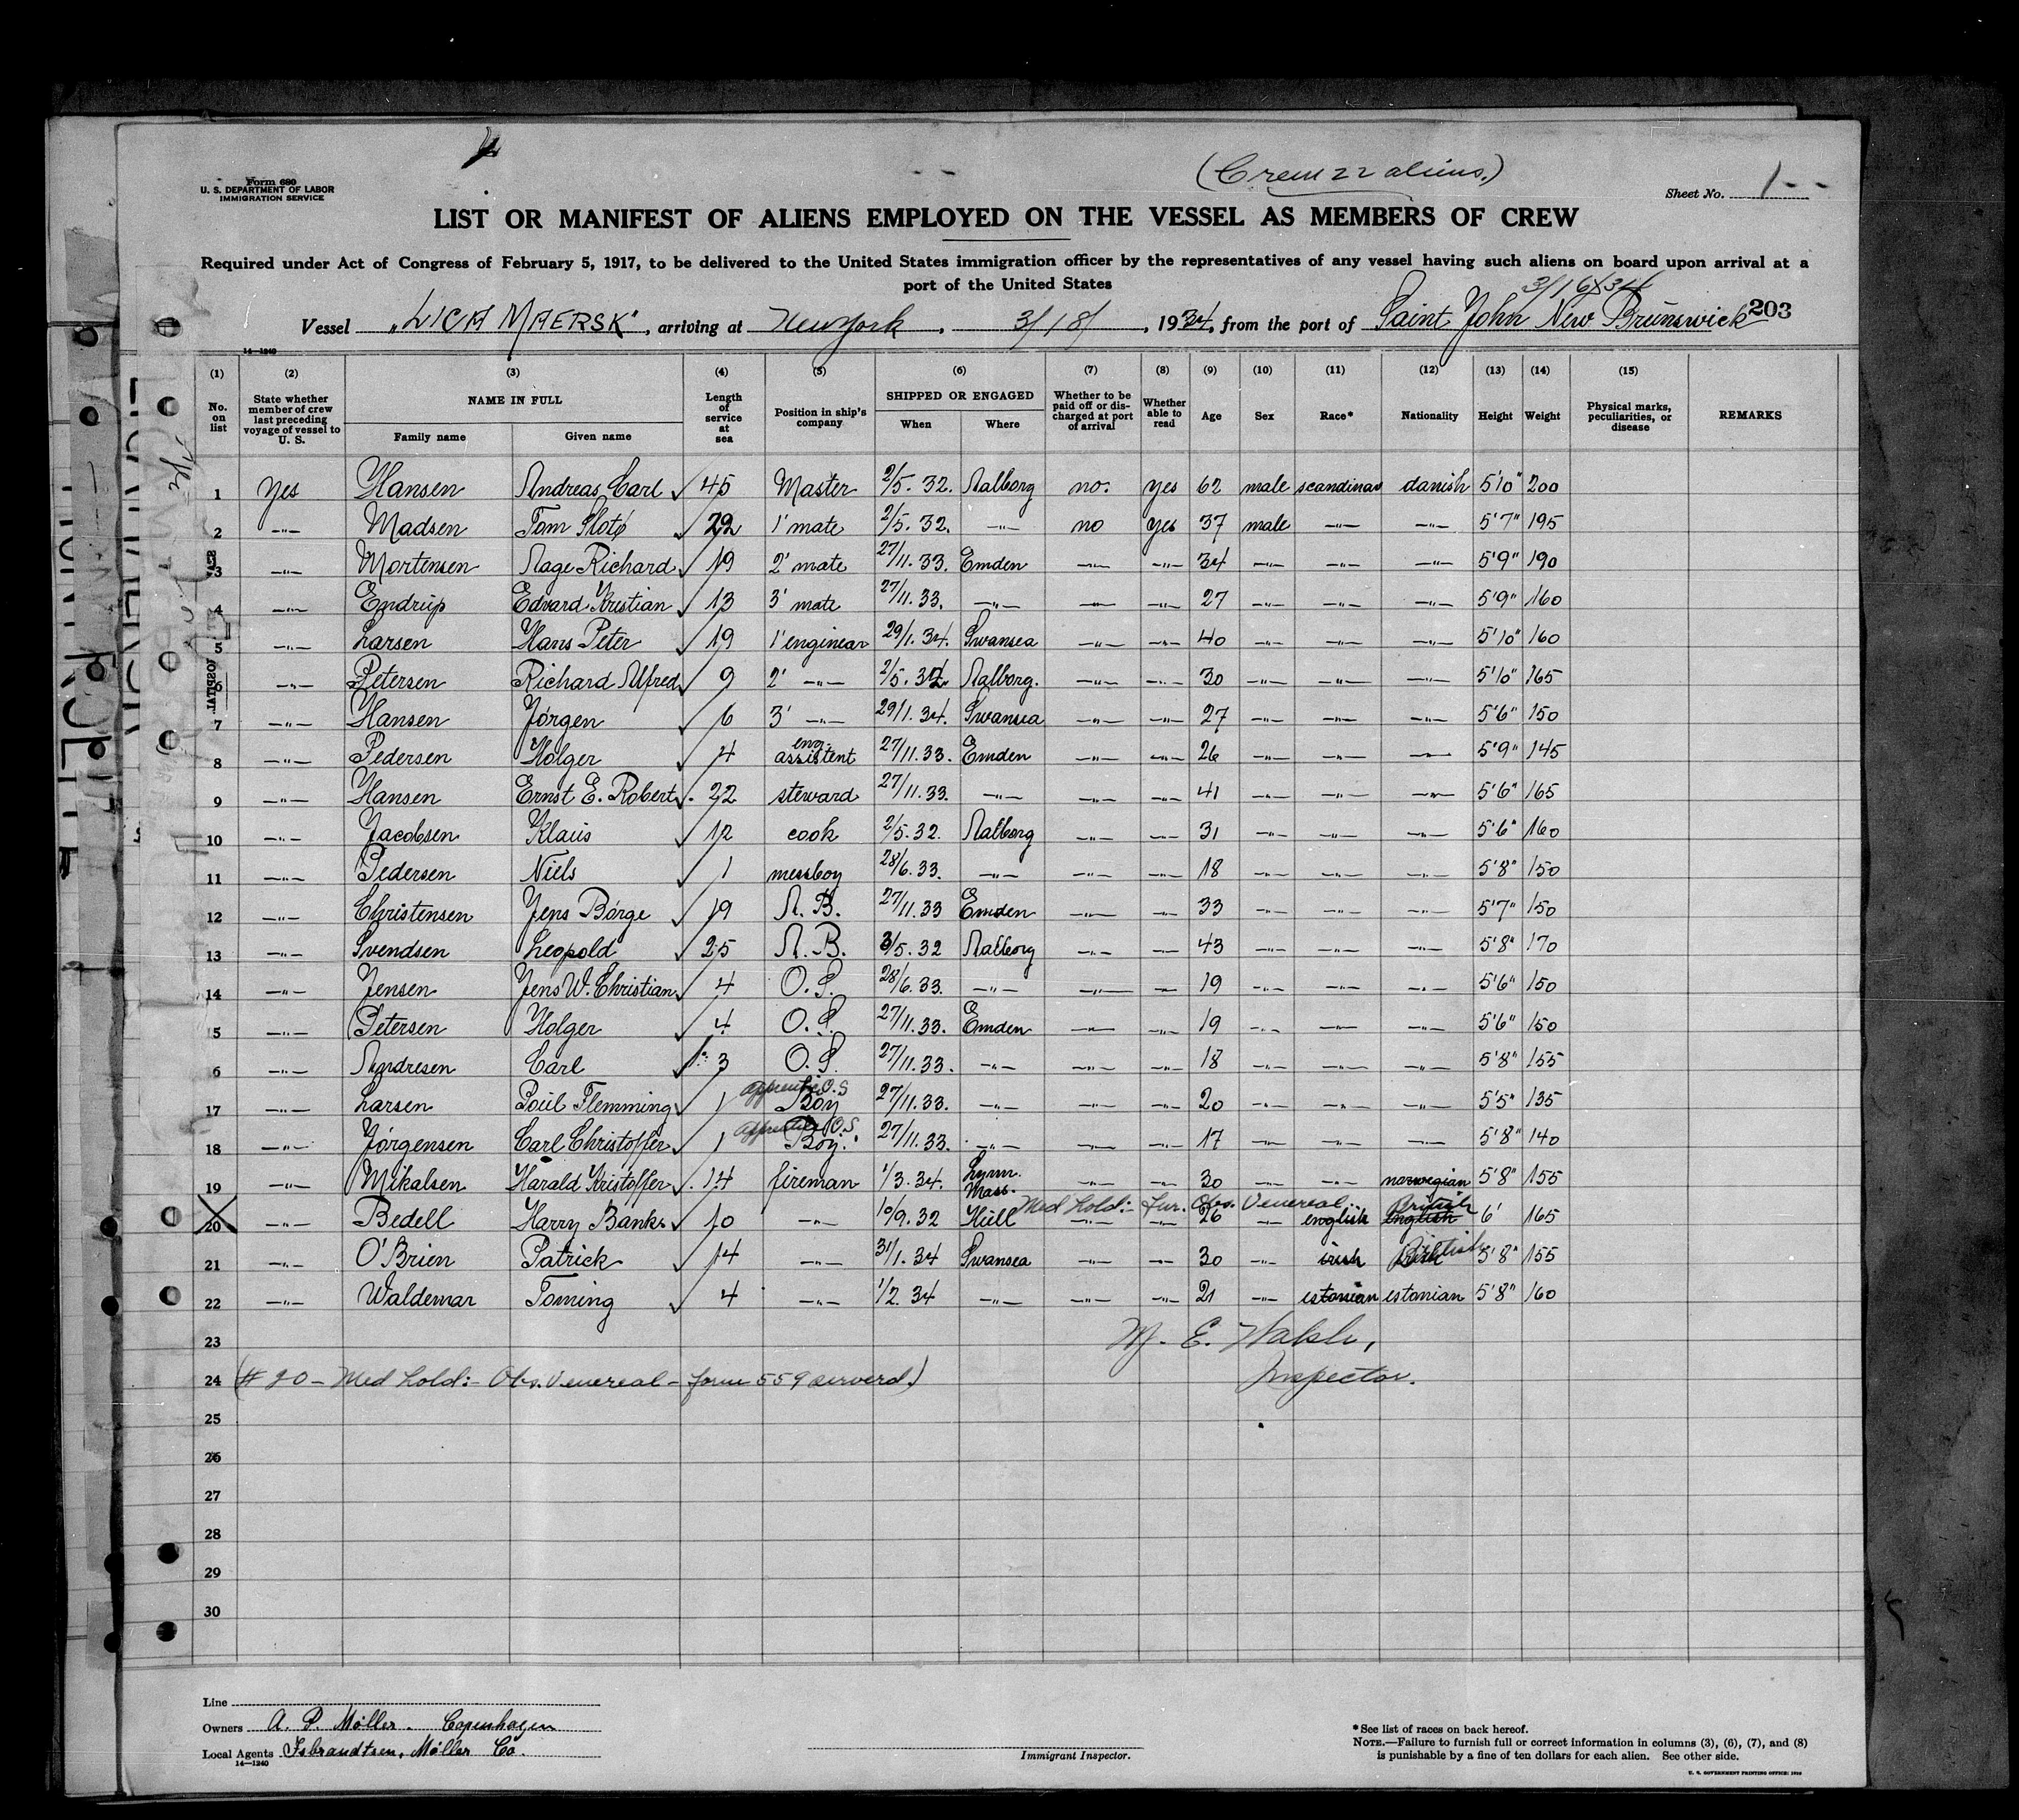 (Crew 22 aliens.)
Form 680
U. S. DEPARTMENT OF LABOR
IMMIGRATION SERVICE
Sheet No. 1
LIST OR MANIFEST OF ALIENS EMPLOYED ON THE VESSEL AS MEMBERS OF CREW
Required under Act of Congress of February 5, 1917, to be delivered to the United States immigration officer by the representatives of any vessel having such aliens on board upon arrival at a
port of the United States
3/16/34
Vessel "LICA MAERSK", arriving at New York, 3/18/, 1934, from the port of Saint John New Brunswick 203
14—1240
(1) (2) (3) (4) (5) (6) (7) (8) (9) (10) (11) (12) (13) (14) (15)
No. on list State whether member of crew last preceding voyage of vessel to U. S. NAME IN FULL Family name Given name Length of service at sea Position in ship's company SHIPPED OR ENGAGED When Where Whether to be paid off or discharged at port of arrival Whether able to read Age Sex Race* Nationality Height Weight Physical marks, peculiarities, or disease REMARKS
1 Yes Hansen Andreas Carl 45 Master 2/5. 32. Aalborg no. yes 62 male scandinav danish 5'10" 200
2 —"— Madsen Tom Ploto 22 1' mate 2/5. 32. —"— no yes 37 male —"— —"— 5'7" 195
3 —"— Mortensen Aage Richard 19 2' mate 27/11. 33. Emden —"— —"— 34 —"— —"— —"— 5'9" 190
4 —"— Endrup Edvard Kristian 13 3' mate 27/11. 33. —"— —"— —"— 27 —"— —"— —"— 5'9" 160
5 —"— Larsen Hans Peter 19 1' enginear 29/1. 34. Swansea —"— —"— 40 —"— —"— —"— 5'10" 160
6 —"— Petersen Richard Alfred 9 2' —"— 2/5. 32. Aalborg. —"— —"— 30 —"— —"— —"— 5'10" 165
7 —"— Hansen Jørgen 6 3' —"— 29/1. 34. Swansea —"— —"— 27 —"— —"— —"— 5'6" 150
8 —"— Pedersen Holger 4 eng. assistent 27/11. 33. Emden —"— —"— 26 —"— —"— —"— 5'9" 145
9 —"— Hansen Ernst E. Robert 22 steward 27/11. 33. —"— —"— —"— 41 —"— —"— —"— 5'6" 165
10 —"— Jacobsen Klaus 12 cook 2/5. 32. Aalborg —"— —"— 31 —"— —"— —"— 5'6" 160
11 —"— Pedersen Niels 1 messboy 28/6. 33. —"— —"— —"— 18 —"— —"— —"— 5'8" 150
12 —"— Christensen Jens Børge 19 A. B. 27/11. 33 Emden —"— —"— 33 —"— —"— —"— 5'7" 150
13 —"— Svendsen Leopold 25 A. B. 3/5. 32 Aalborg —"— —"— 43 —"— —"— —"— 5'8" 170
14 —"— Jensen Jens W. Christian 4 O. S. 28/6. 33. —"— —"— —"— 19 —"— —"— —"— 5'6" 150
15 —"— Petersen Holger 4 O. S. 27/11. 33. Emden —"— —"— 19 —"— —"— —"— 5'6" 150
16 —"— Andresen Carl 3 O. S. 27/11. 33. —"— —"— —"— 18 —"— —"— —"— 5'8" 155
17 —"— Larsen Poul Flemming 1 apprentice O.S Boy 27/11. 33. —"— —"— —"— 20 —"— —"— —"— 5'5" 135
18 —"— Jørgensen Carl Christoffer 1 apprentice O.S Boy. 27/11. 33. —"— —"— —"— 17 —"— —"— —"— 5'8" 140
19 —"— Mikalsen Harald Kristoffer 14 fireman 1/3. 34. Lynn. Mass. —"— —"— 30 —"— —"— norwegian 5'8" 155
Med Hold:- Fur. Obs. Venereal.
20 —"— Bedell Harry Banks 10 —"— 10/9. 32 Hull —"— —"— 26 —"— english english British 6' 165
21 —"— O'Brien Patrick 14 —"— 31/1. 34 Swansea —"— —"— 30 —"— irish British 5'8" 155
22 —"— Waldemar Toming 4 —"— 1/2. 34 —"— —"— —"— 21 —"— estonian estonian 5'8" 160
23 M. E. Walsh,
24 (# 20 - Med Hold:- Obs. Venereal - form 559 served.) Inspector.
25
26
27
28
29
30
HOSPITAL
Line
Owners A. P. Møller. Copenhagen
Local Agents Isbrandtsen, Møller Co.
14—1240
Immigrant Inspector.
*See list of races on back hereof.
NOTE.—Failure to furnish full or correct information in columns (3), (6), (7), and (8)
is punishable by a fine of ten dollars for each alien. See other side.
U. S. GOVERNMENT PRINTING OFFICE: 1929